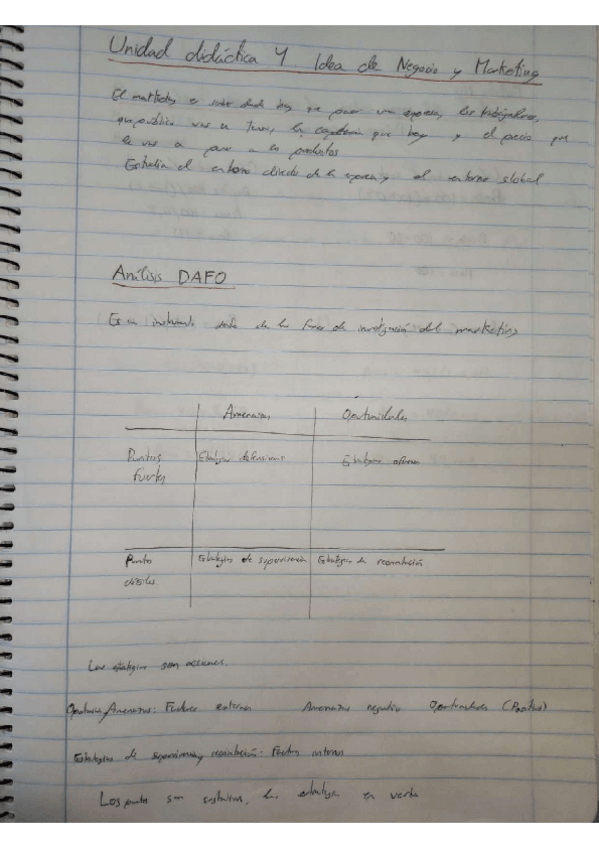 Unidad didáctica 4. Idea de Negocio y Marketing
El marketing es saber desde hoy que para una empresa, los trabajadores,
que público vas a tener, la que hay y el precio que
le vas a poner a los productos
Estudia el entorno directo de la empresa y el entorno global
Análisis DAFO
Es un instrumento de las de investigación del marketing
Amenazas Oportunidades
Puntos fuertes Estrategias defensivas Estrategias ofensivas
Puntos débiles Estrategias de supervivencia Estrategias de reorientación
Las estrategias son acciones.
Amenazas: Factores externos Amenazas negativo Oportunidades (Positivo)
Estrategias de supervivencia y reorientación: Factores internos
Los puntos son sustantivos, las estrategias en verbo